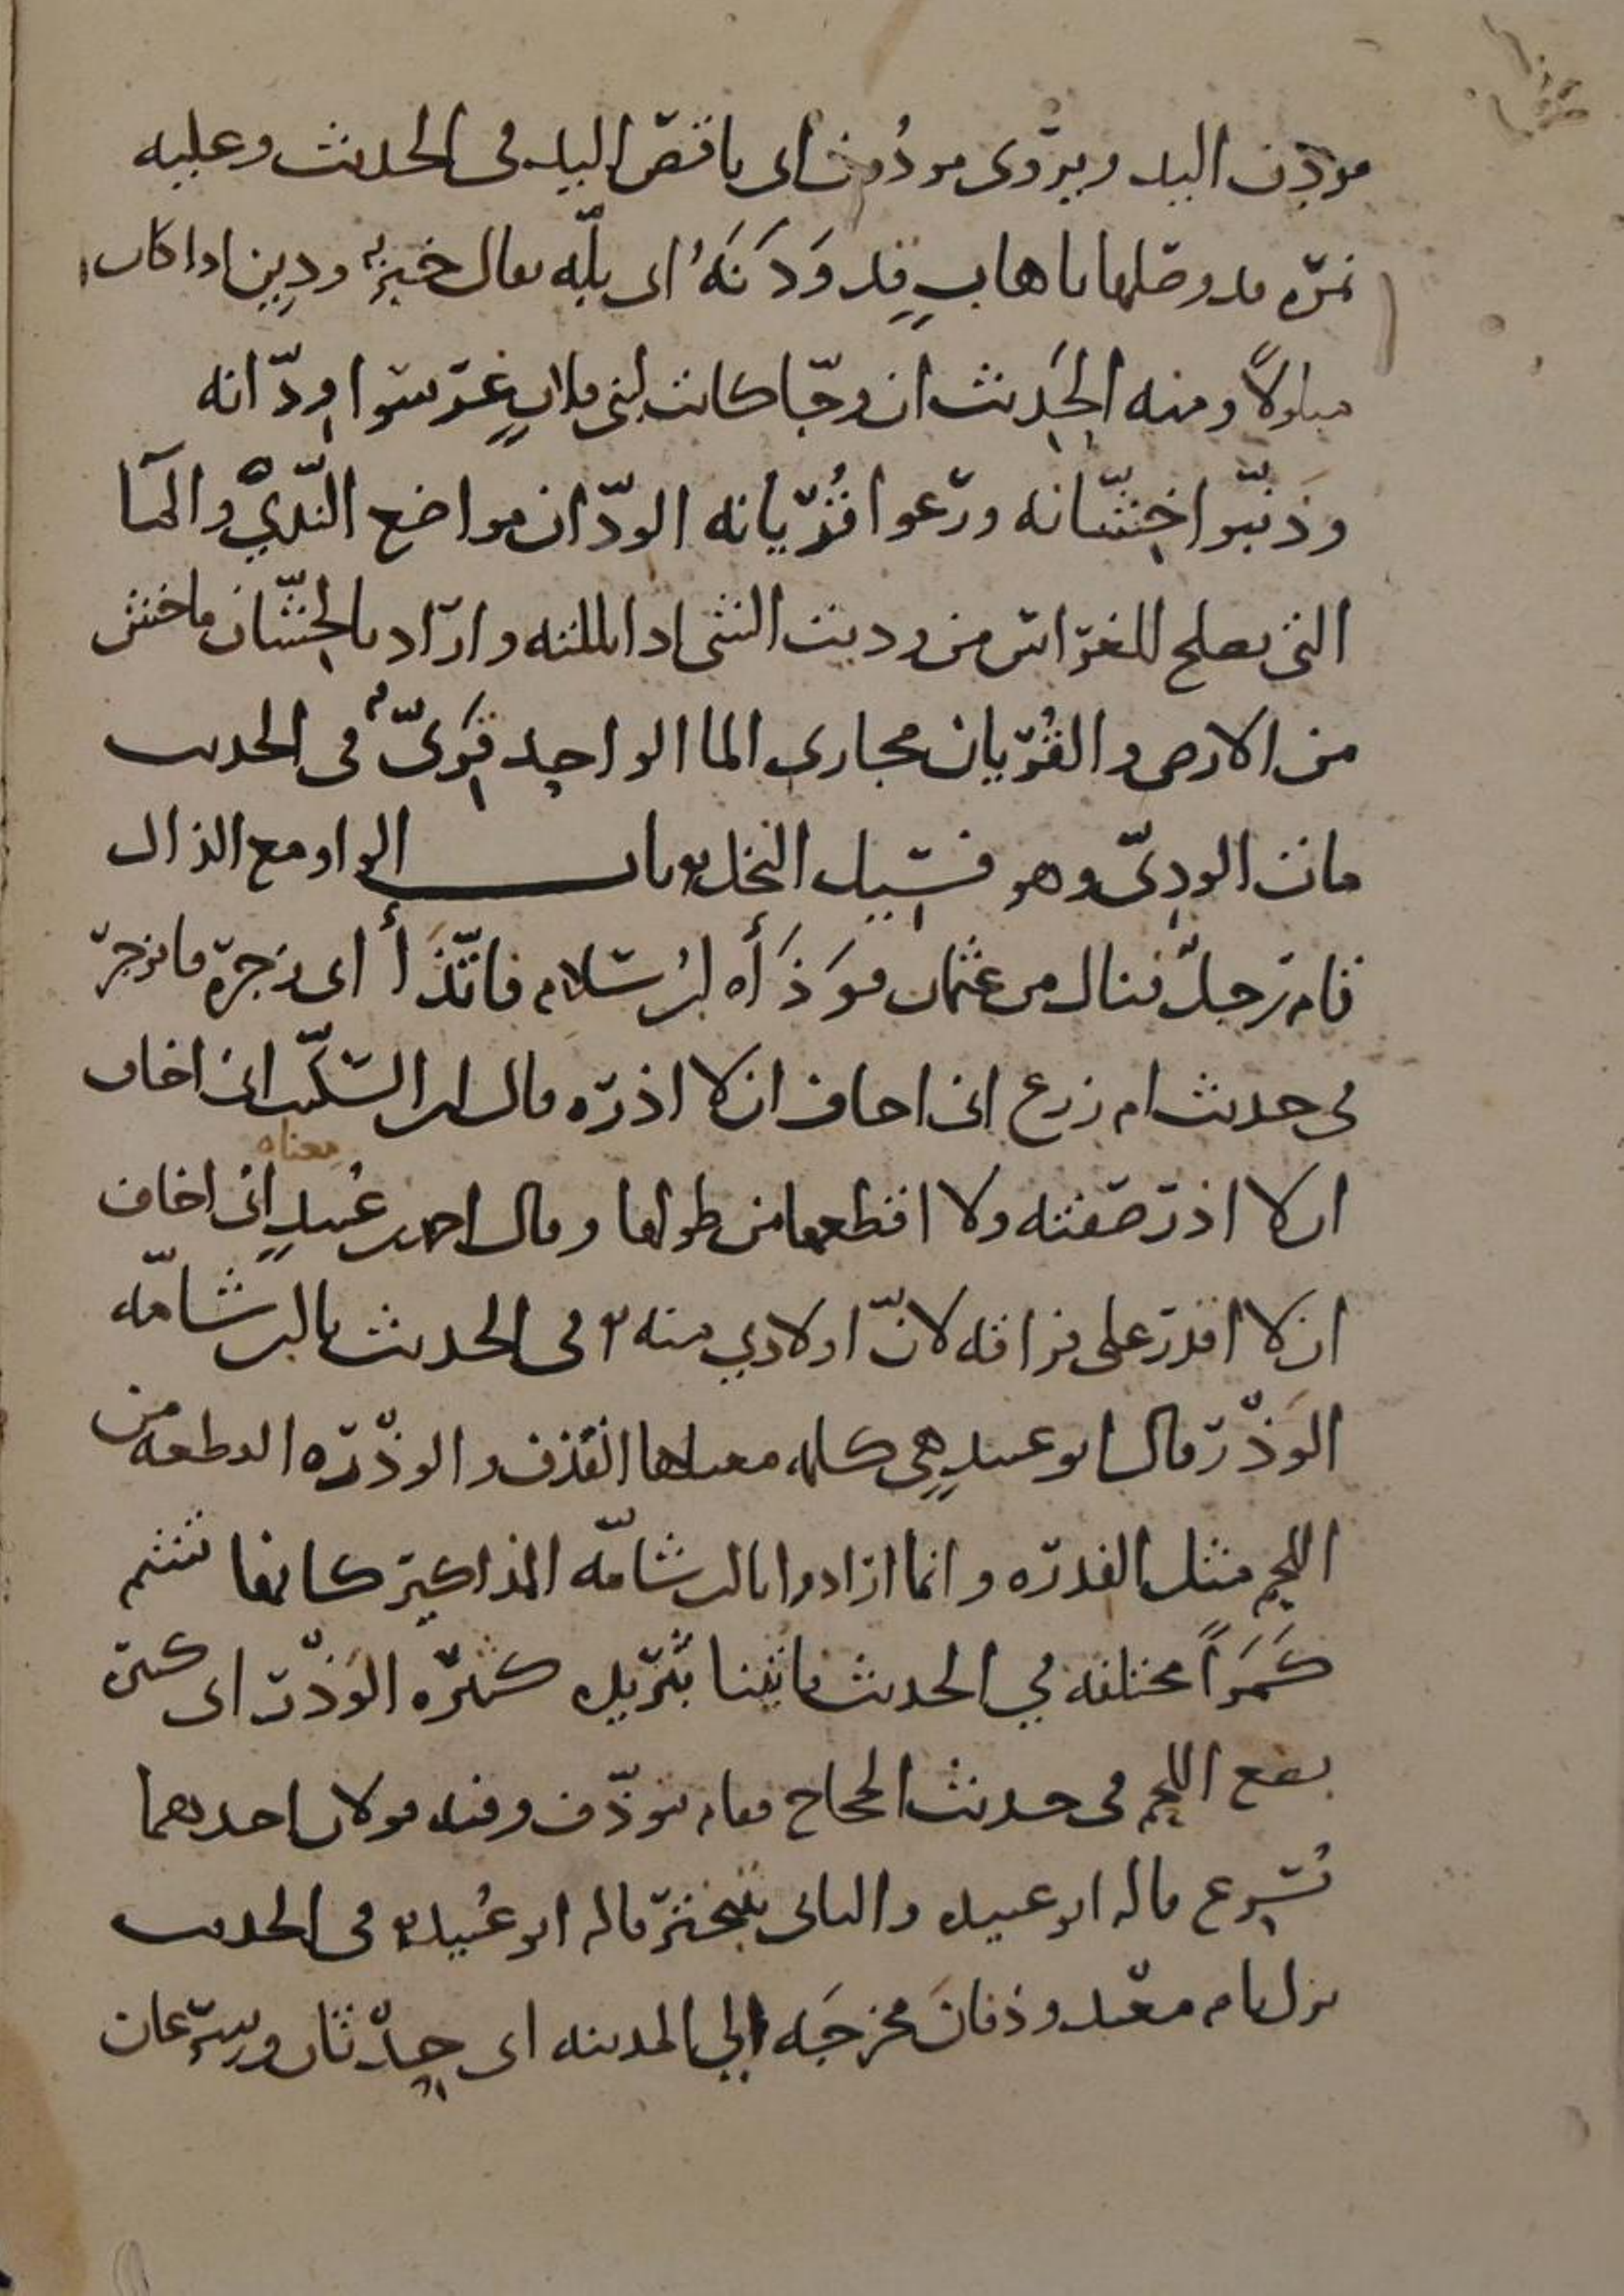 مودن اليد ويروى مودون اى ناقص اليد فى الحديث وعليه
نمرة قد وصلها باهاب قد وَدَنَهُ اى بلّه يقال خبز ودين اذا كان
مبلولاً ومنه الحديث ان وجّا كانت لبنى فلان غرسوا ودّانه
وذنّبوا خِشّانه ورعوا قُرْيانه الودّان مواضع الندىّ والماء
التى تصلح للغراس من ودنت الشى اذا بللته واراد بالخشّان ما خشن
من الارض والقُرْيان مجارى الما الواحد قَرىّ فى الحديث
مات الودىّ وهو فسيل النخل باب الواو مع الذال
قام رجلٌ فنال من عثمان فوَذَأه ابن سلام فاتّذَأ اى زجره فانزجر
فى حديث ام زرع انى اخاف ان لا اذره قال ابن السكّيت انى اخاف
ان لا اذر صفته ولا اقطعها من طولها وقال احمد بن عُبيدٍ معناه انى اخاف
ان لا اقدر على فراقه لانّ اولادي منه فى الحديث يا ابن شامّه
الوَذْر قال ابو عبيدٍ هى كلمه معناها القذف والوذْره القطعه من
اللحم مثل الفدره وانما ارادوا يا ابن شامّه المذاكير كانها تشم
كَمَراً مختلفه في الحديث فاتينا بثريده كثيره الوَذْر اى كثيرة
بضع اللحم فى حديث الحجاج فقام يتوذّف وفيه قولان احدهما
يُسرع قاله ابو عبيد والثانى يتبختر قاله ابو عُبيدة فى الحديث
نزل بام معبد وذفانَ مخرجَه الي المدينه اى حِدْثان وسِرعان